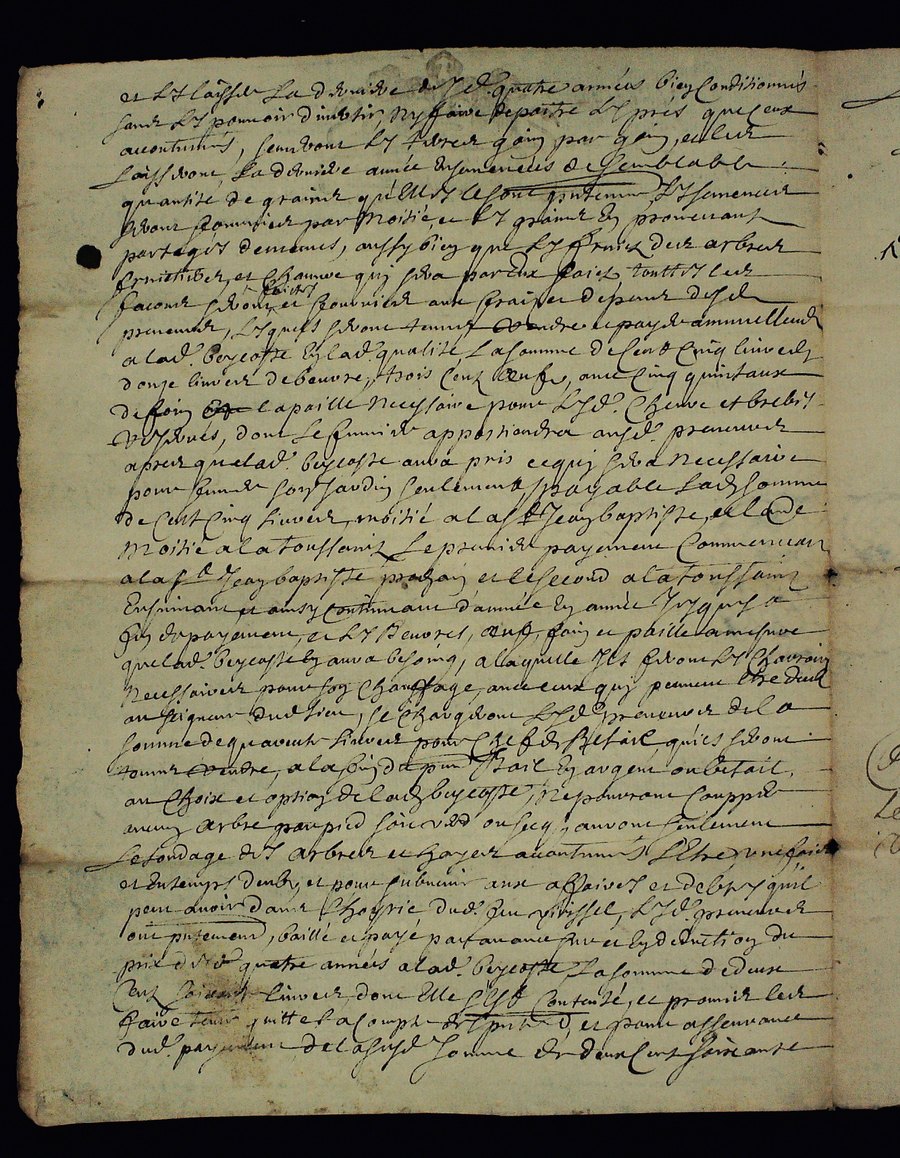 et Les laisser La derniere desd. quatre années bien Conditionnés
sans Les pouvoir divertir Ny faire depaitre Les prés que ceux
accoutumés, semeront Les terres gain par gain, et Les
Laisseront La derniere année ensemencées de semblable
quantité de grains qu'Elles Le sont Les semences
seront fournies par Moitié, et Les grains En provenant
partagés de mesmes, aussy bien que Les fruits des arbres
fruitiers, et Chanvre quy sera par Eux faict touttes Les
facons seront faictes et fournies aux fraix et depens desd.
preneurs, Lesquels seront tenus rendre et payer annuellement
a lad. beycoste En lad. qualité La somme de Cent Cinq livres
donze livres de beurre, trois Cent œufs, avec Cinq quintaux
de foin et la paille Necessaire pour Lesd. Chevre et brebis
reservés, dont Le fumier appartiendra ausd. preneurs
apres que lad. beycoste aura pris ce quy sera Necessaire
pour fumer son Jardin seulement, payable Lad. somme
de Cent Cinq Livres, moitié a la st Jean baptiste, et l'autre
Moitié a la toussaint Le premier payement Commencant
a la st Jean baptiste prochain et le second a la toussaint
Ensuivant et ainsy Continuant d'année En année Jusques a
fin de payement, et Les beurres, œufs, foin et paille a mesure
que lad. beycoste En aura besoing, a laquelle Ils feront Les Charrois
Necessaires pour son Chauffage, avec ceux quy peuvent Etre deus
au seigneur dud. lieu, se Chargeront Lesd. preneurs de la
somme de quarente Livres pour Chef de Betail qu'ils seront
tenus rendre, a la fin du Bail En argent ou betail,
au Choix et option de lad. beycoste, Ne pourront Coupper
aucun arbre par pied soit verd ou secq, auront seulement
Le Londage des arbres et hayes accoutumés L'Etre une fois
et En temps deub, et pour subvenir aux affaires et debtes qu'il
peut avoir dans L'hoirie dud. feu Lesd. preneurs
ont baillé et payé par avance sur et En deduction du
prix desd. quatre années a lad. beycoste La somme de deux
Cent soixante livres, dont Elle s'Est Contenté, et promis Les
faire tenir quitte et pour asseurance
dud. payement de la susd. somme de deux Cent soixante